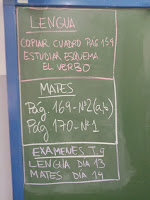 LENGUA
COPIAR CUADRO PÁG 154
ESTUDIAR ESQUEMA
EL VERBO
MATES
Pág 169-Nº2(a,b)
Pág 170-Nº1
EXÁMENES T.9
LENGUA DÍA 13
MATES DÍA 14